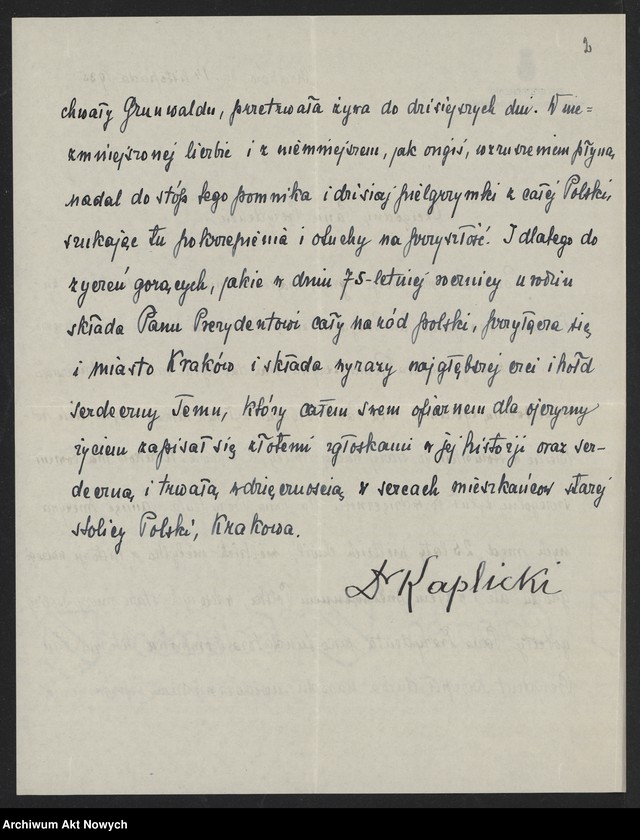 2
chwały Grunwaldu, przetrwała żywa do dzisiejszych dni. W nie=
zmniejszonej liczbie i z niemniejszem, jak ongiś, wzruszeniem płyną
nadal do stóp tego pomnika i dzisiaj pielgrzymki z całej Polski,
szukając tu pokrzepienia i otuchy na przyszłość. I dlatego do
życzeń gorących, jakie w dniu 75-letniej rocznicy urodzin
składa Panu Prezydentowi cały naród polski, przyłącza się
i miasto Kraków i składa wyrazy najgłębszej czci i hołd
serdeczny Temu, który całem swem ofiarnem dla ojczyzny
życiem zapisał się złotemi zgłoskami w jej historji oraz ser-
deczną i trwałą wdzięcznością w sercach mieszkańców starej
stolicy Polski, Krakowa.
Dr Kaplicki
Archiwum Akt Nowych